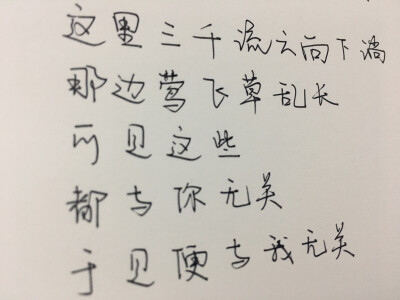 这里三千流云向下淌
那边莺飞草乱长
可是这些
都与你无关
于是便与我无关